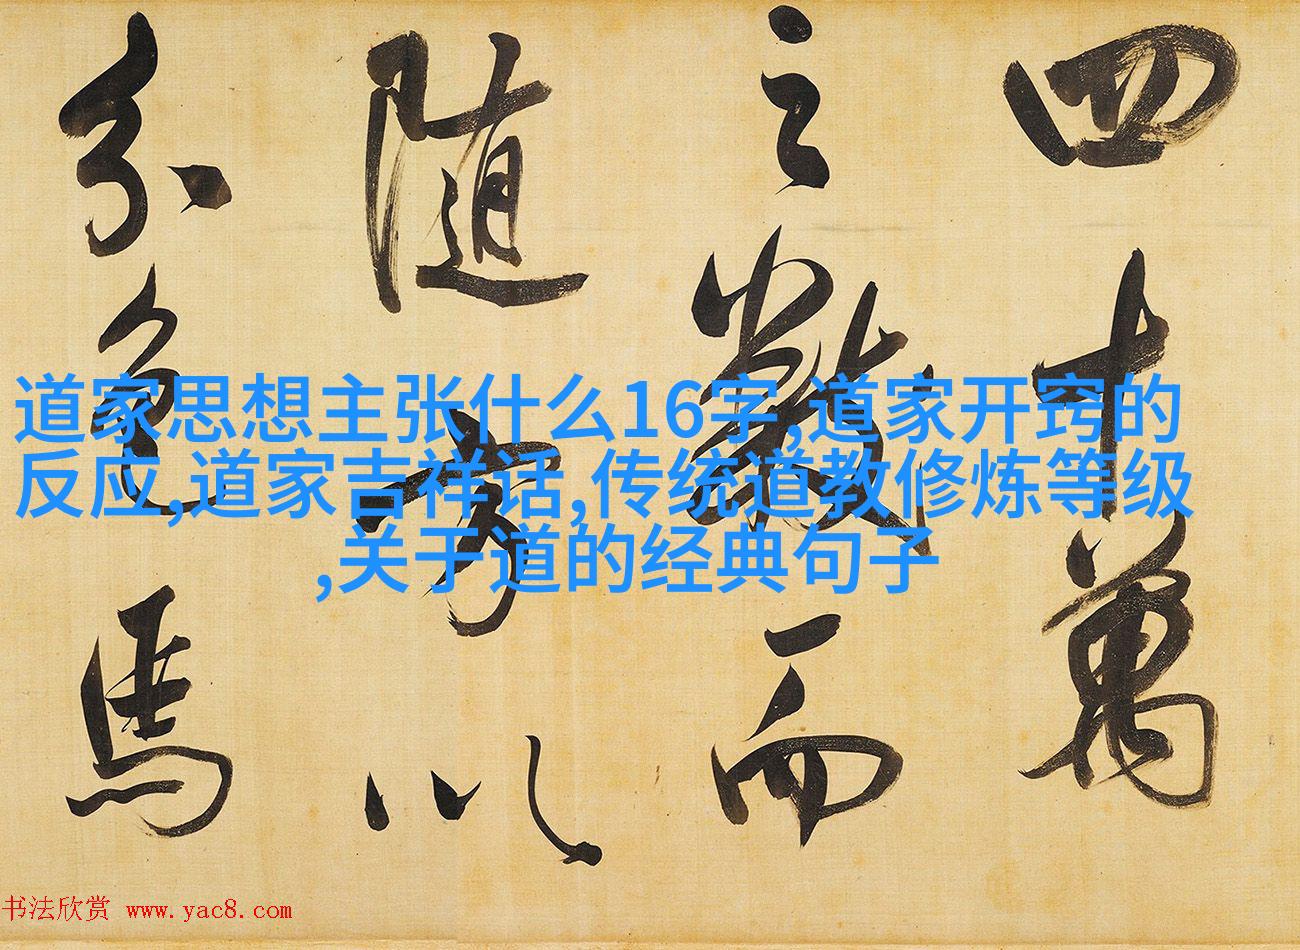 四十萬
之數而
随方以
分色馬
道家思想主张什么16字,道家开窍的
反应,道家吉祥话,传统道教修炼等级
,关于道的经典句子
书法欣赏 www.yac8.com